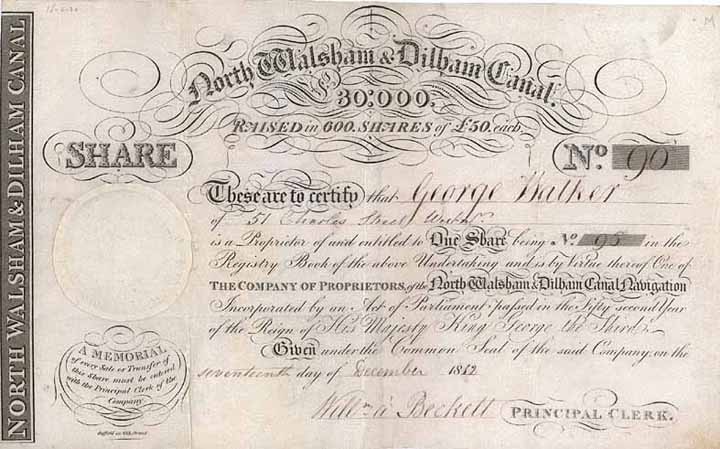 North Walsham & Dilham Canal.
£30,000,
RAISED in 600 SHARES of £50, each.
SHARE
No. 90
These are to certify that George Walker
of 51 Charles Street
is a Proprietor of and entitled to One Share being No. 95 in the
Registry Book of the above Undertaking and is by Virtue thereof One of
THE COMPANY OF PROPRIETORS, of the North Walsham & Dilham Canal Navigation
Incorporated by an Act of Parliament passed in the Fifty second Year
of the Reign of His Majesty King George the Third.
Given under the Common Seal of the said Company, on the
seventeenth day of December 1812
Willm a' Beckett PRINCIPAL CLERK.
A MEMORIAL
of every Sale or Transfer of
this Share must be entered
with the Principal Clerk of the
Company.
NORTH WALSHAM & DILHAM CANAL